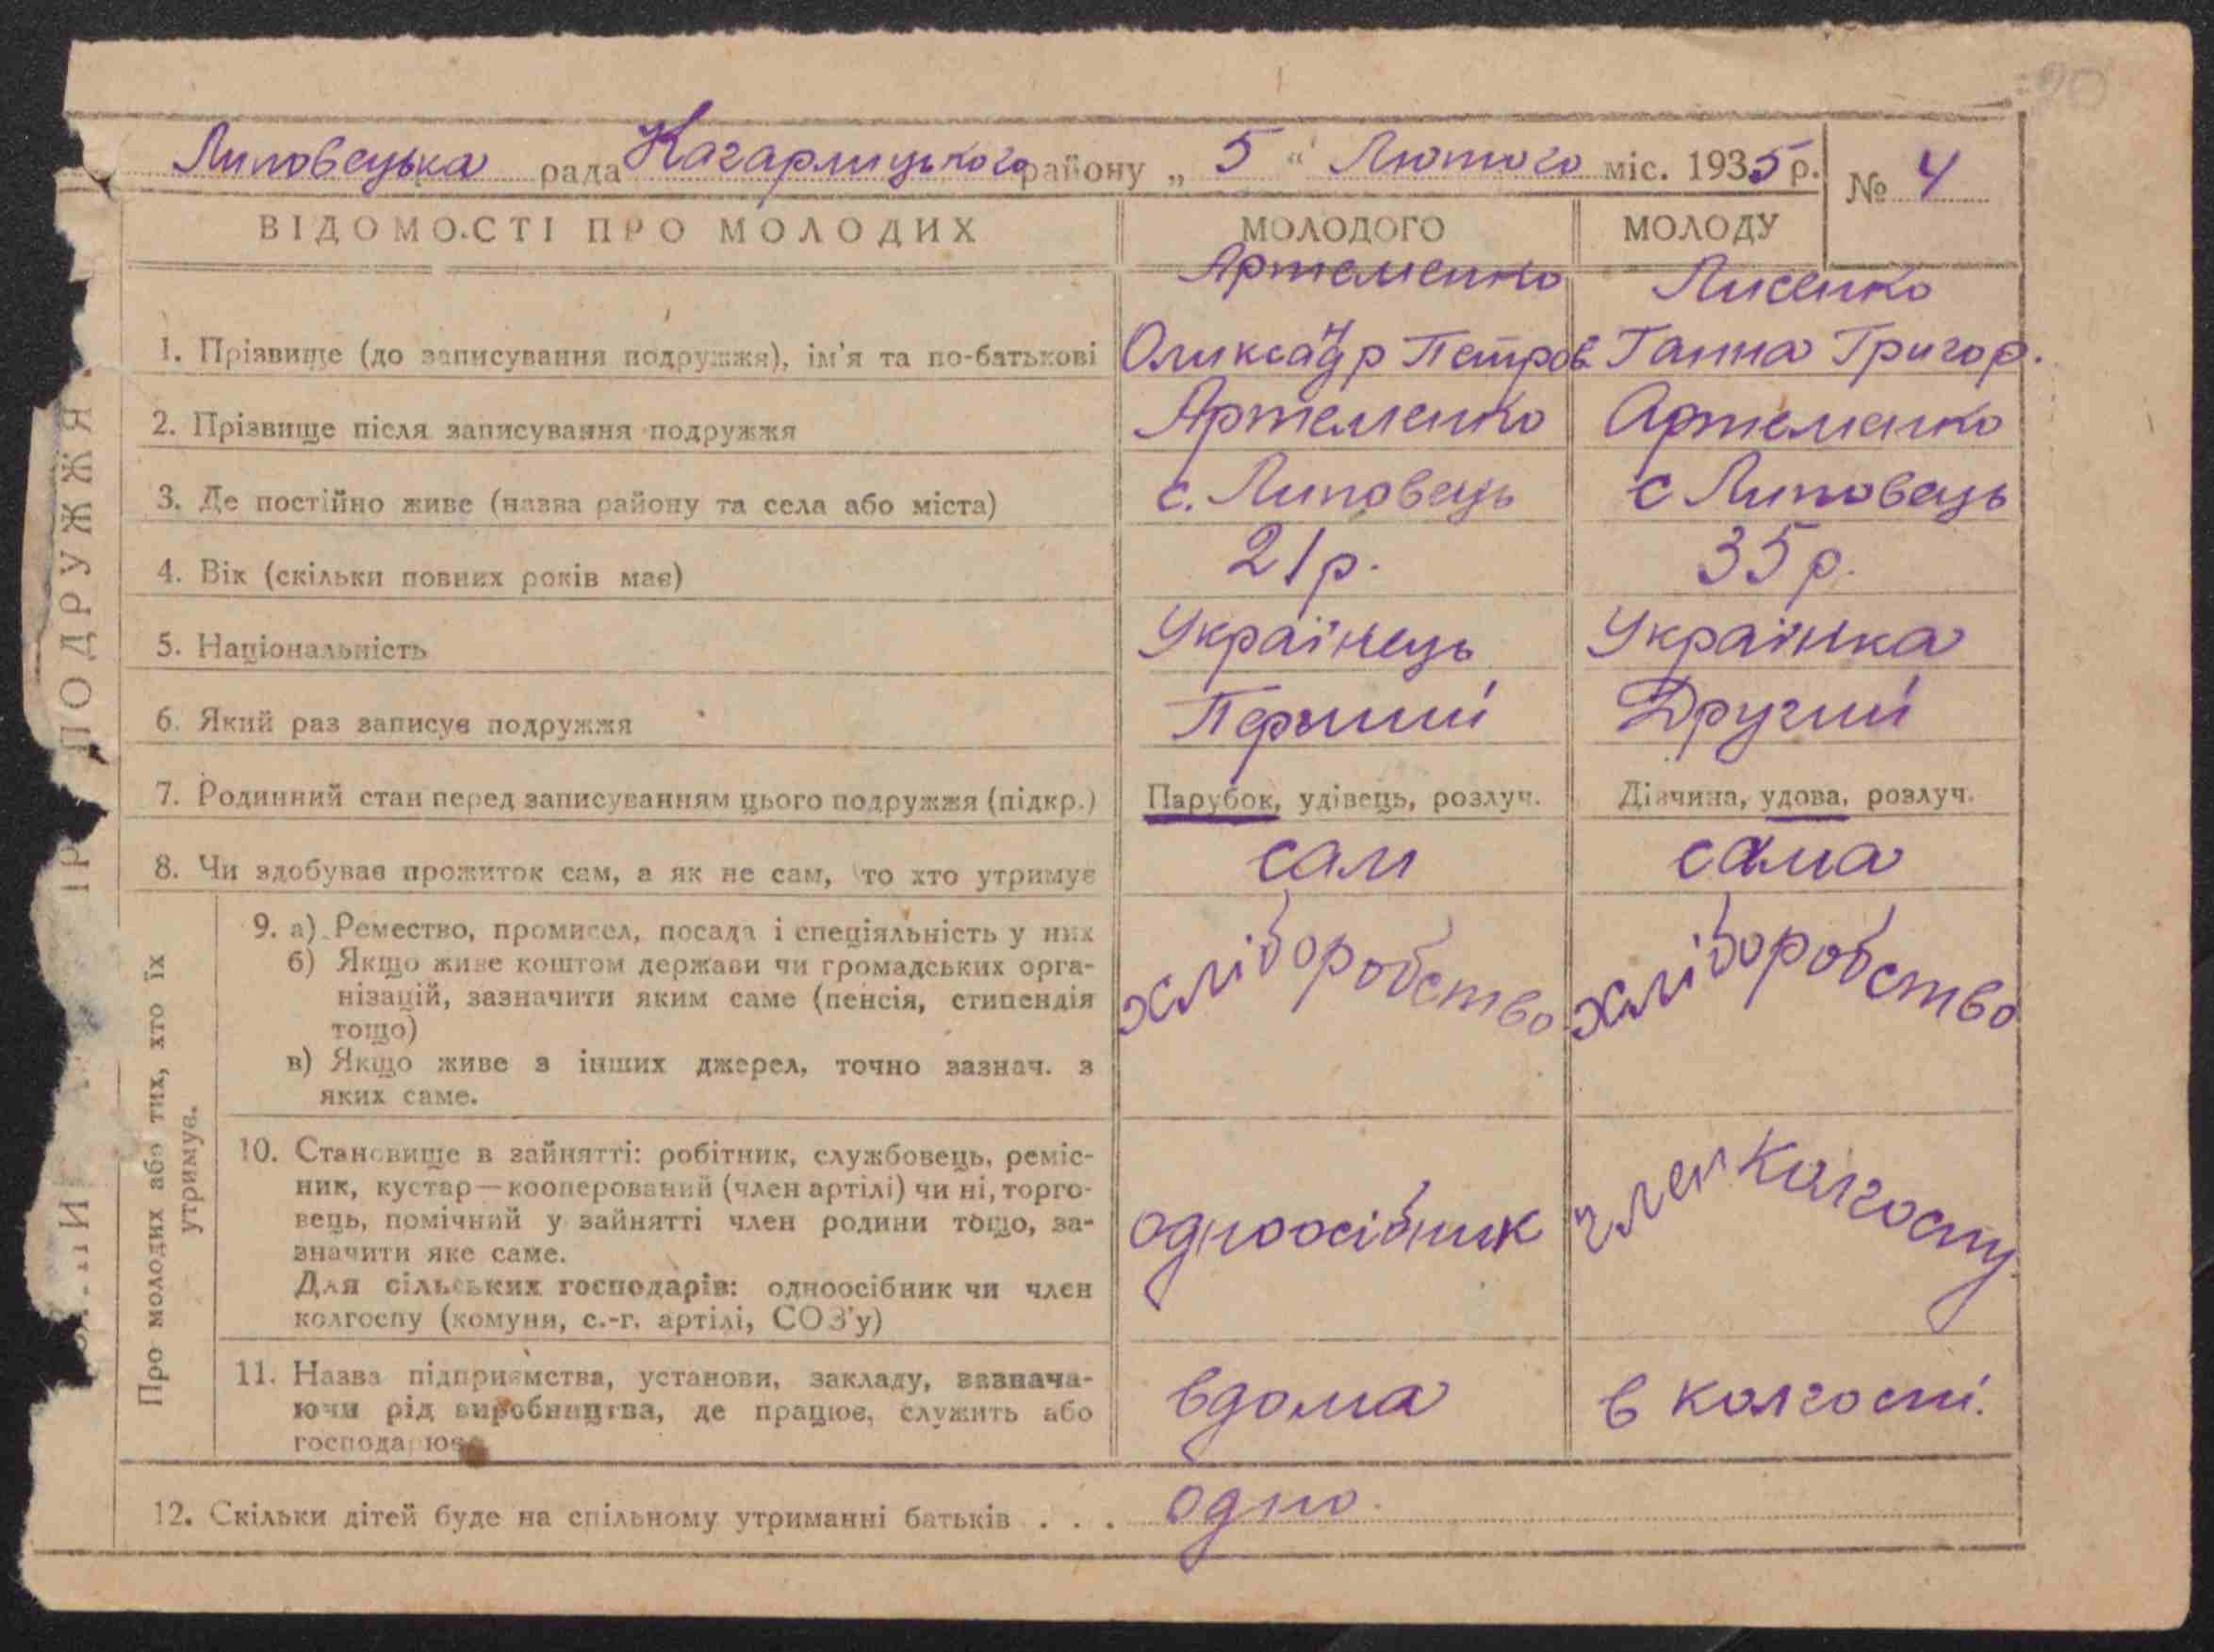 20
Липовецька рада Кагарлицького району „ 5 “ Лютого міс. 1935 р. № 4
ВІДОМОСТІ ПРО МОЛОДИХ МОЛОДОГО МОЛОДУ
Артеменко Лисенко
1. Прізвище (до записування подружжя), ім'я та по-батькові Оликсандр Петров Ганна Григор.
2. Прізвище після записування подружжя Артеменко Артеменко
3. Де постійно живе (назва району та села або міста) с. Липовець с Липовець
4. Вік (скільки повних років має) 21р. 35р.
5. Національність Українець Українка
6. Який раз записує подружжя Перший Другий
7. Родинний стан перед записуванням цього подружжя (підкр.) Парубок, удівець, розлуч. Дівчина, удова, розлуч.
8. Чи здобуває прожиток сам, а як не сам, то хто утримує сам сама
Про молодих або тих, хто їх
утримує.
9. а) Ремество, промисел, посада і спеціяльність у них хліборобство хліборобство
б) Якщо живе коштом держави чи громадських орга-
нізацій, зазначити яким саме (пенсія, стипендія
тощо)
в) Якщо живе з інших джерел, точно зазнач. з
яких саме.
10. Становище в зайнятті: робітник, службовець, реміс-
ник, кустар—кооперований (член артілі) чи ні, торго-
вець, помічний у зайнятті член родини тощо, за- одноосібник член колгоспу
значити яке саме.
Для сільських господарів: одноосібник чи член
колгоспу (комуни, с.-г. артілі, СОЗ'у)
11. Назва підприємства, установи, закладу, зазнача-
ючи рід виробництва, де працює, служить або вдома в колгоспі.
господарює
12. Скільки дітей буде на спільному утриманні батьків . . . одно.
ПОДРУЖЖЯ